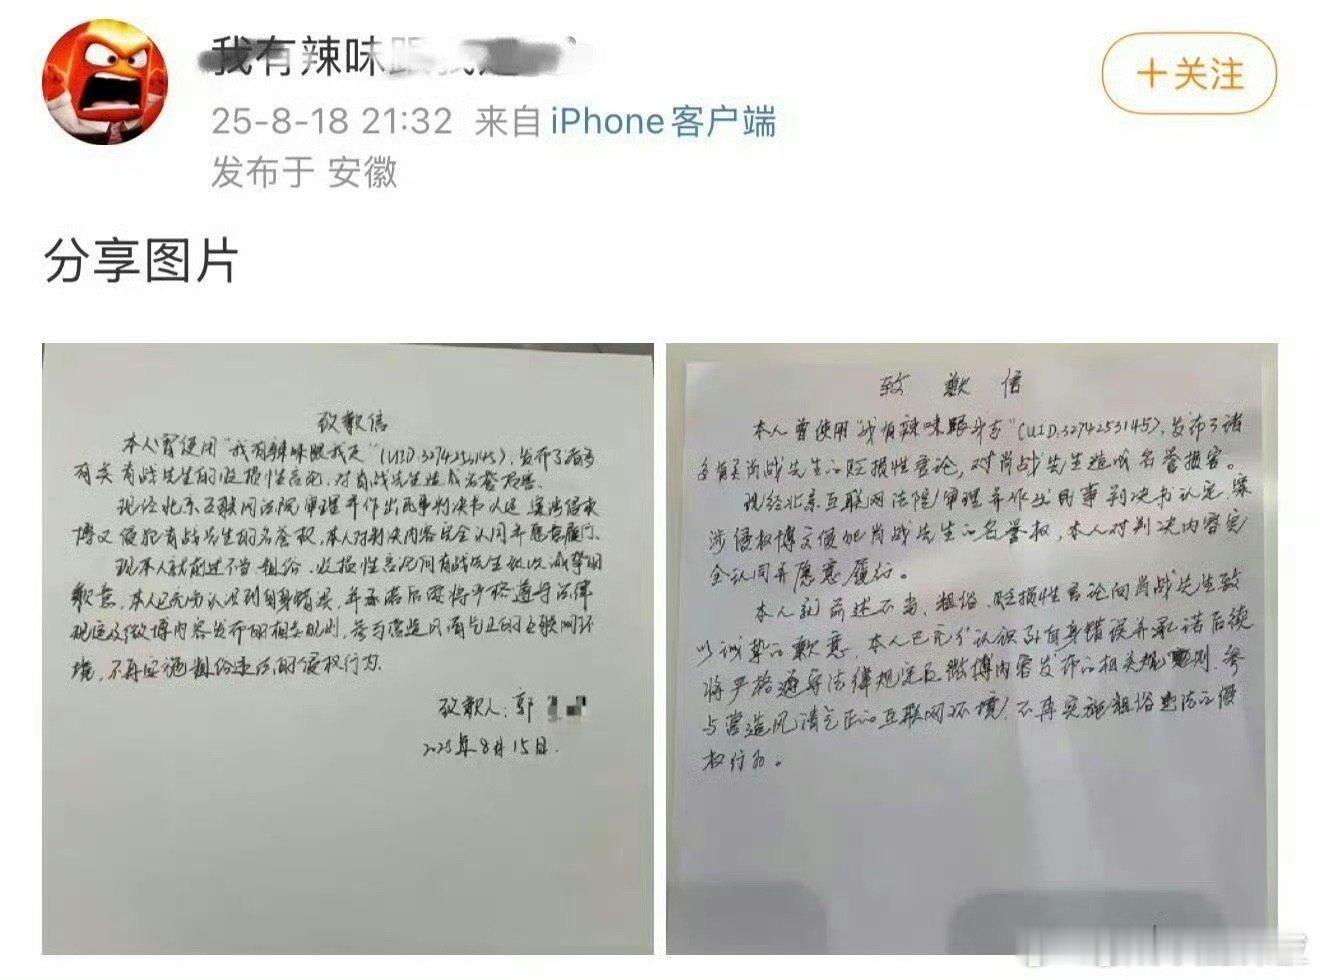 我有辣味跟我走
+关注
25-8-18 21:32 来自 iPhone客户端
发布于 安徽
分享图片
致歉信
本人曾使用“我有辣味跟我走”(UID:3274253145),发布了诸多
有关肖战先生的贬损性言论,对肖战先生造成名誉损害。
现经北京互联网法院审理并作出民事判决书认定,案涉侵权
博文侵犯肖战先生的名誉权,本人对判决内容完全认同并愿意履行。
现本人就前述不当、粗俗、贬损性言论向肖战先生致以诚挚的
歉意,本人已充分认识到自身错误,并承诺后续将严格遵守法律
规定及微博内容发布的相关规则,参与营造风清气正的互联网环
境,不再实施粗俗违法的侵权行为。
致歉人:郭
2025年8月15日.
致歉信
本人曾使用“我有辣味跟我走”(UID:3274253145),发布了诸
多有关肖战先生的贬损性言论,对肖战先生造成名誉损害。
现经北京互联网法院审理并作出民事判决书认定,案
涉侵权博文侵犯肖战先生的名誉权,本人对判决内容完
全认同并愿意履行。
本人就前述不当、粗俗、贬损性言论向肖战先生致
以诚挚的歉意,本人已充分认识到自身错误并承诺后续
将严格遵守法律规定及微博内容发布的相关规则,参
与营造风清气正的互联网环境,不再实施粗俗违法之侵
权行为。